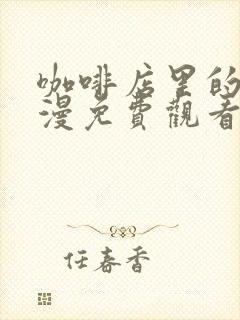 咖啡店里的
漫免費觀看
任春香